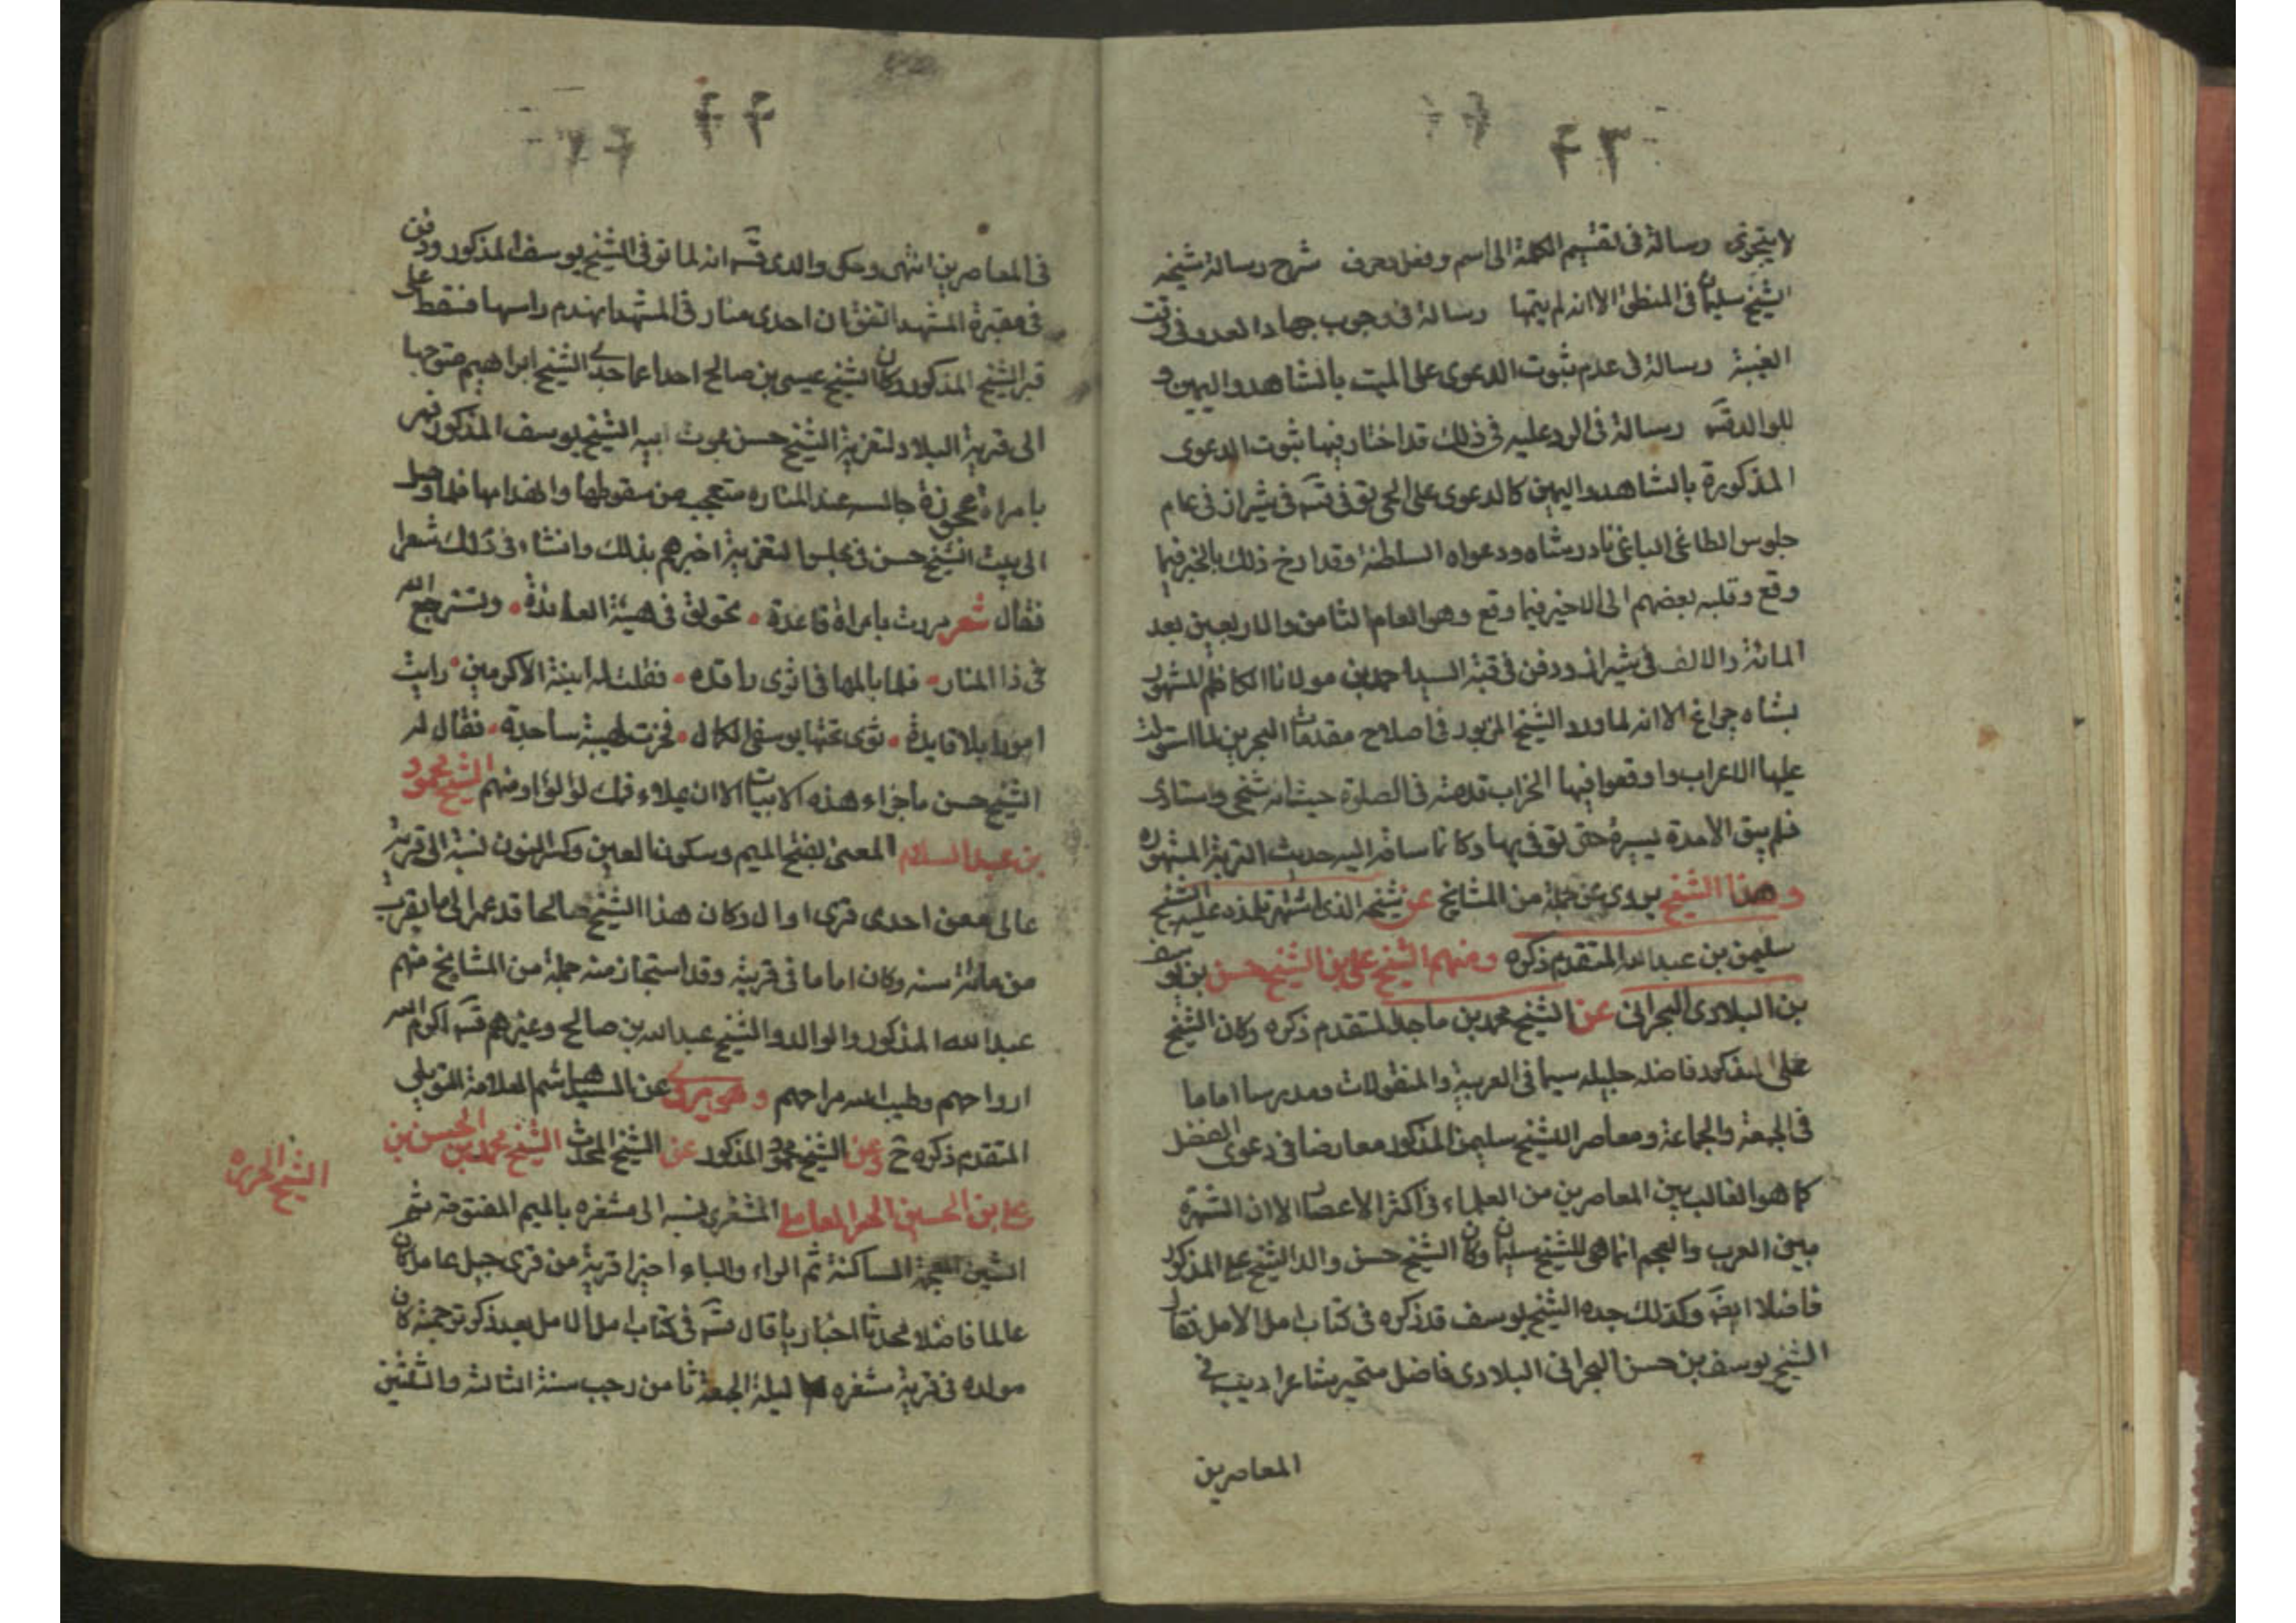 ٤٣
لا يتجزى رسالة فى تقسيم الكلمة الى اسم وفعل وحرف شرح رسالة شيخه
الشيخ سليمان فى المنطق الا انه لم يتمها رسالة فى وجوب جهاد العدو فى وقت
الغيبة رسالة فى عدم ثبوت الدعوى على الميت بالشاهد واليمين و
للوالد قده رسالة فى الرد عليه فى ذلك قد اختار فيها ثبوت الدعوى
المذكورة بالشاهد واليمين كالدعوى على الحى توفى قده فى شيراز فى عام
جلوس الطاغى الباغى نادر شاه ودعواه السلطنة وقد ارخ ذلك بالخير فيما
وقع وقلبه بعضهم الى لا خير فيما وقع وهو العام الثامن والاربعين بعد
المائة والالف فى شيراز ودفن فى قبة السيد احمد بن مولانا الكاظم المشهور
بشاه چراغ الا انه لما ورد الشيخ المزبور فى اصلاح مقدمات البحرين لما استولت
عليها الاعراب واوقعوا فيها الخراب قدمته فى الصلوة حيث انه شيخى واستادى
فلم يبق الا مدة يسيرة حتى توفى بها وكانما سافر اليه حديث التربة المشهوره
وهذا الشيخ يروى عن جملة من المشايخ عن شيخه الذى اشتهر تلمذه عليه الشيخ
سليمن بن عبد الله المتقدم ذكره ومنهم الشيخ على بن الشيخ حسن بن يوسف
بن البلادى البحرانى عن الشيخ محمد بن ماجد المتقدم ذكره وكان الشيخ
على المذكور فاضلا جليلا سيما فى العربية والمنقولات ومدرسا اماما
فى الجمعة والجماعة ومعاصر الشيخ سليمن المذكور معارضا فى دعوى الفضل
كما هو الغالب بين المعاصرين من العلماء فى اكثر الاعصار الا ان الشهرة
بين العرب والعجم انما هى للشيخ سليمان وكان الشيخ حسن والد الشيخ على المذكور
فاضلا ايضا وكذلك جده الشيخ يوسف قد ذكره فى كتاب امل الامل فقال
الشيخ يوسف بن حسن البحرانى البلادى فاضل متبحر شاعر اديب فى
المعاصرين
٤٤
فى المعاصرين انتهى وحكى والدى قده انه لما توفى الشيخ يوسف المذكور ودفن
فى مقبرة المشهد اتفق ان احدى منار فى المشهد انهدم راسها فسقط على
قبر الشيخ المذكور وكان الشيخ عيسى بن صالح احد اعمام جدى الشيخ ابراهيم متوجها
الى قرية البلاد لتعزية الشيخ حسن بموت ابيه الشيخ يوسف المذكور فمر
بامراة عجوزة جالسه عند المناره متعجب من سقوطها وانهدامها فلما وصل
الى بيت الشيخ حسن فى مجلس التعزية اخبرهم بذلك وانشاء فى ذلك شعرا
فقال شعر مررت بامراة قاعدة • تحولق فى هيئة العائذة • وتسترجع الله
فى ذا المنار • فلما بالها فى اثرى راقده • فقلت له ابنة الاكرمين • رايت
امورا بلا فايدة • ثوى تحتها يوسف الكمال • فخرت لهيبة ساجدة • فقال له
الشيخ حسن ما جزاء هذه الابيات الا ان يملاء فمك لؤلؤا ومنهم الشيخ محمود
بن عبد السلام المعنى بفتح الميم وسكون العين وكسر النون نسبة الى قرية
عالى معن احدى قرى اوال وكان هذا الشيخ صالحا قد عمر الى ما يقرب
من مائة سنه وكان اماما فى قريته وقد استجاز منه جملة من المشايخ منهم
عبد الله المذكور والوالد والشيخ عبد الله بن صالح وغيرهم قده اكرم الله
ارواحهم وطيب الله مراحمهم وهو يروى عن السيد هاشم العلامة التوبلى
المتقدم ذكره ح وعن الشيخ محمود المذكور عن الشيخ المحدث الشيخ محمد بن الحسن بن
على بن الحسين الحر العاملى المشغرى نسبه الى مشغره بالميم المفتوحه ثم
الشين المعجمة الساكنة ثم الراء والباء اخيرا قرية من قرى جبل عامل كان
عالما فاضلا محدثا اخباريا قال قده فى كتاب امل الامل بعد ذكر ترجمته كان
مولده فى قرية مشغره ليلة الجمعة ثامن رجب سنة الثالثة والثلثين
الشيخ الحر ره